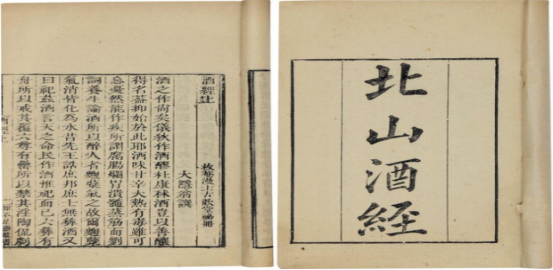 北山酒經
酒經上
枚菴漫士古歡堂秘冊
大隱翁譔
酒之作尚矣儀狄作酒醪杜康秫酒豈以善釀
得名蓋抑始於此耶酒味甘辛大熱有毒雖可
忘憂然能作疾所謂腐腸爛胃潰髓蒸筋而劉
詞養生論酒所以醉人者麴蘖氣之故爾麴蘖
氣消皆化為水昔先王誥庶邦庶士無彝酒又
曰祀茲酒言天之命民作酒惟祀而已六彝有
舟所以戒其覆六尊有罍所以禁其淫陶侃劇